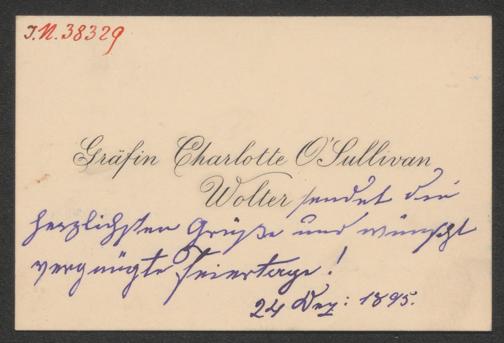 I.N. 38329
Gräfin Charlotte O'Sullivan
Wolter sendet die
herzlichsten Grüße und wünscht
vergnügte Feiertage!
24 Dez: 1895.